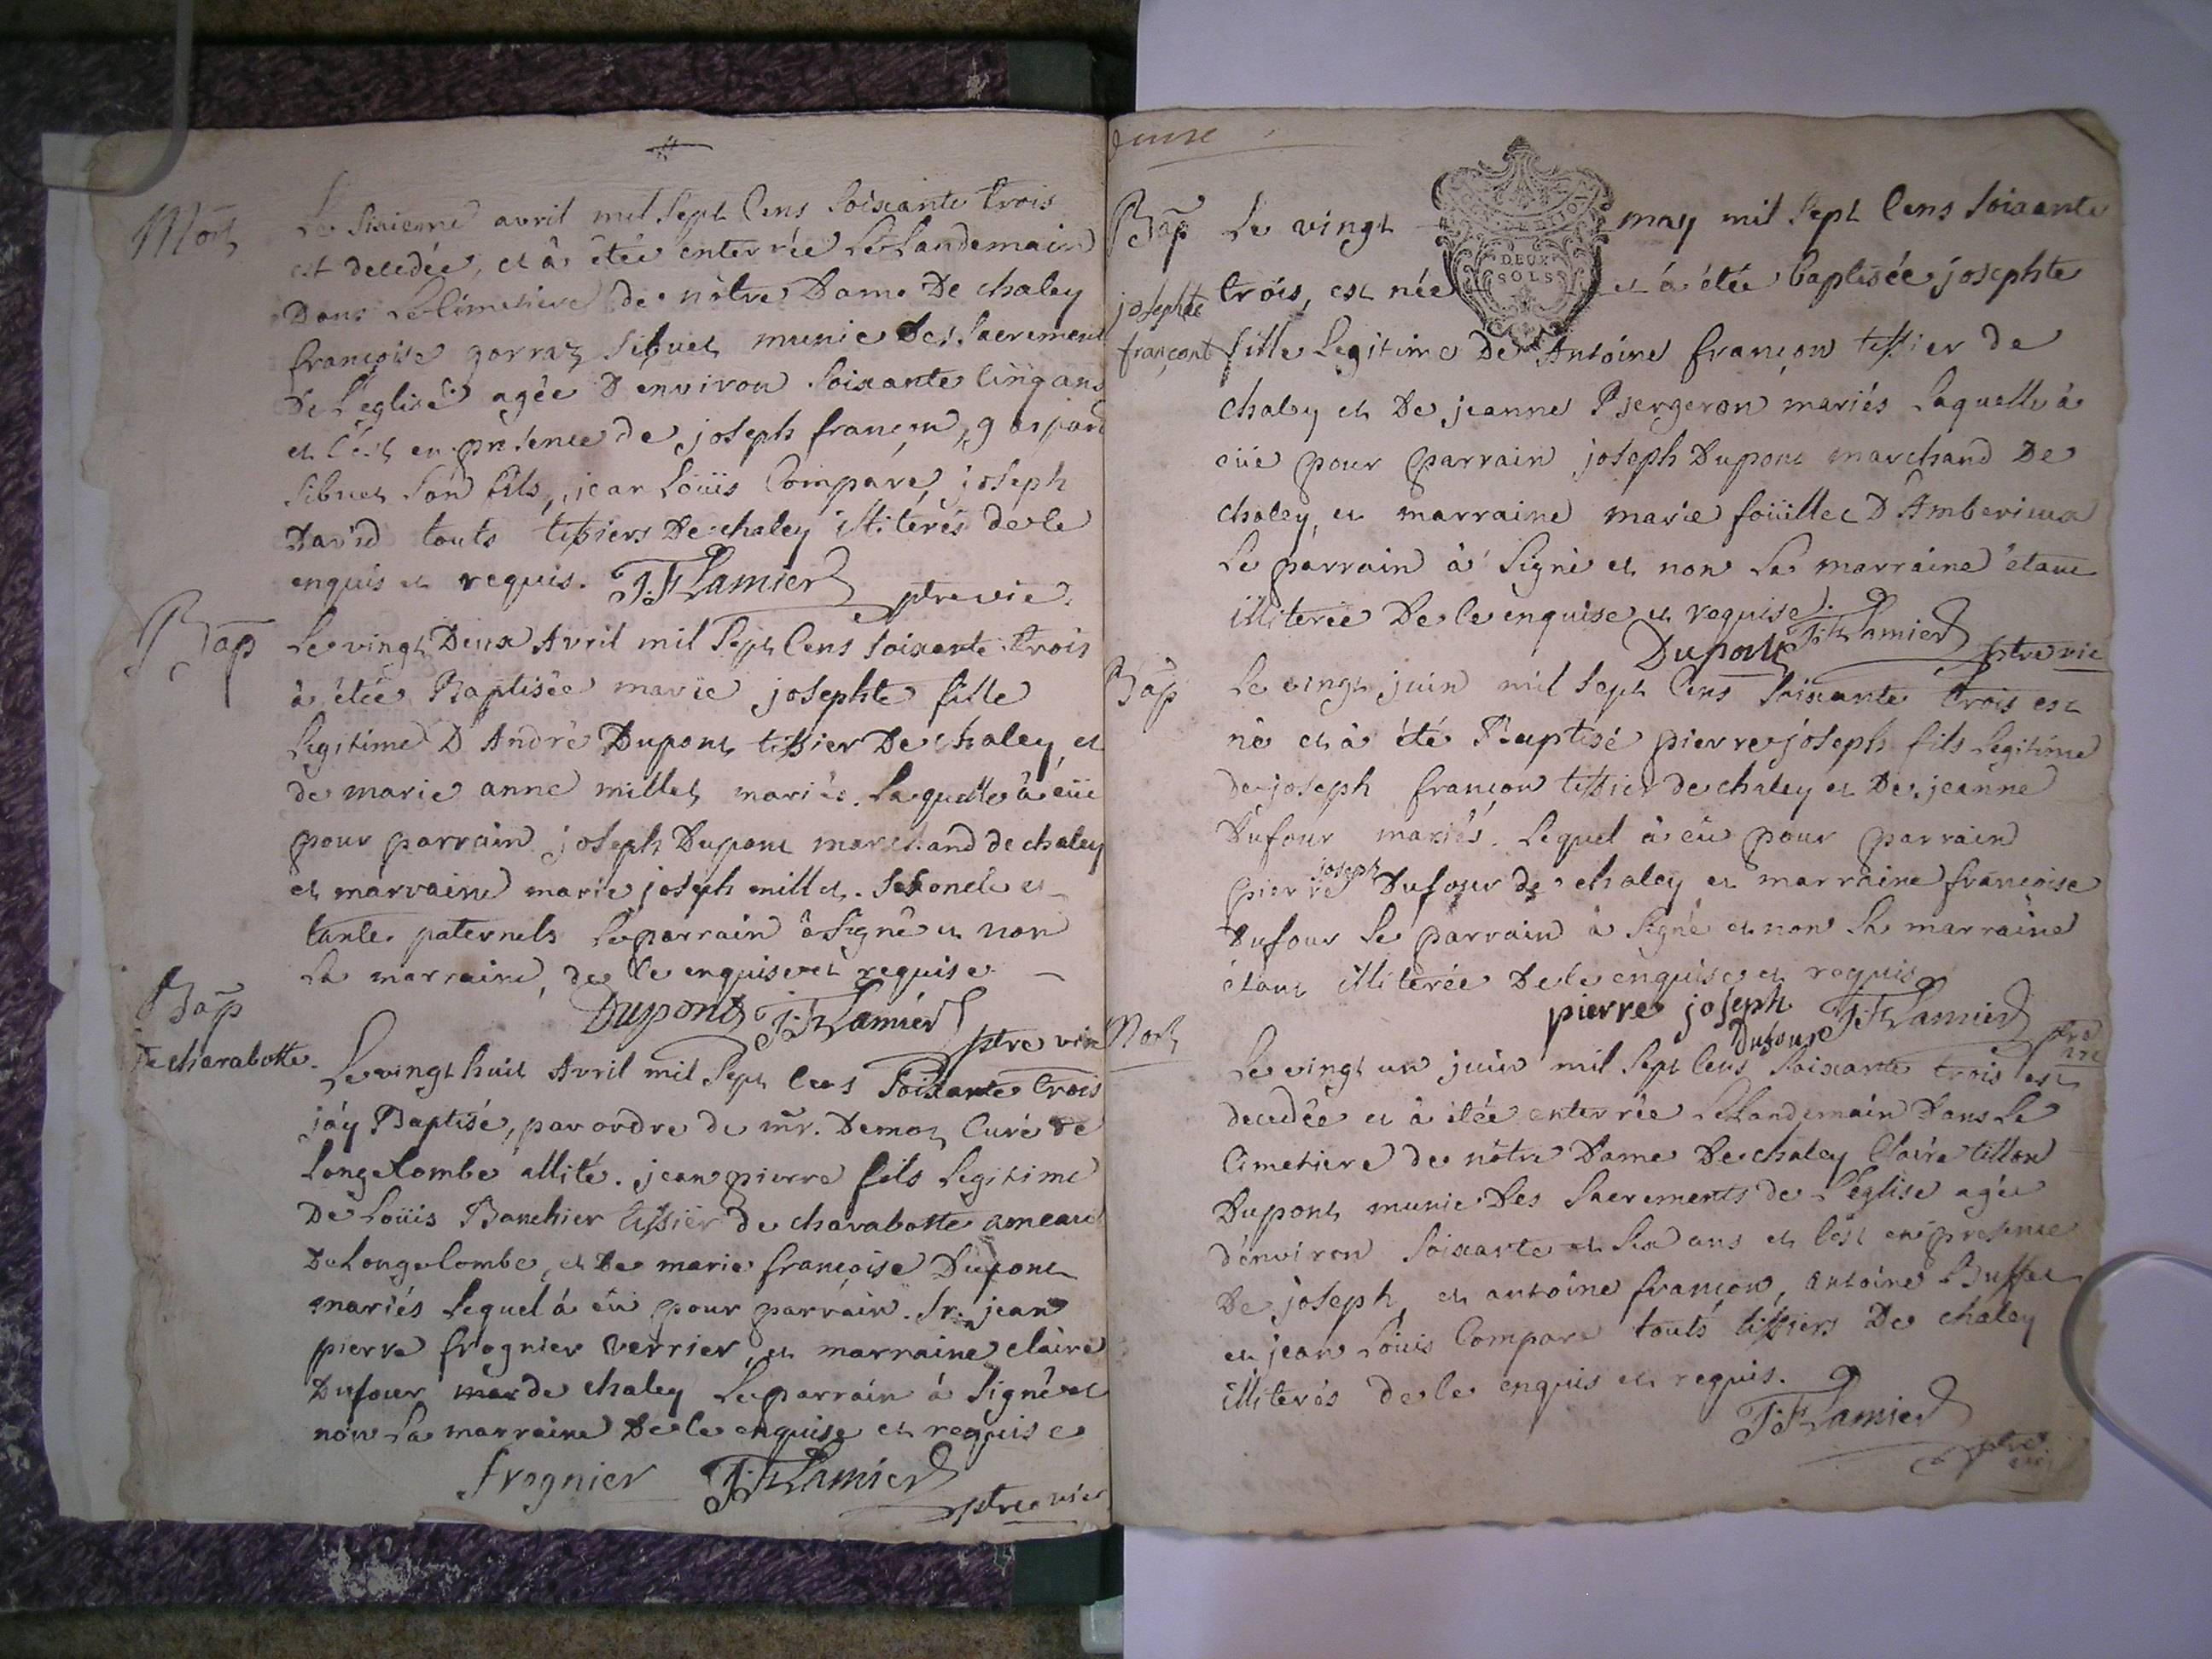 Mort
Le Sixieme avril mil Sept Cens Soixante trois
est decedée, et à êtée enterrée Le Landemain
Dans Le Cimetiere de nôtre Dame De chaley
françoise gorraz Sibuet munie des Sacrements
De L'eglise agée D'environ Soixante Cinq ans
et C'est en presence de joseph françon, gaspard
Sibuet Son fils, jean Loüis Compare, joseph
David touts tissiers De chaley illiterés de ce
enquis et requis. J: F: Lamier ptre vic.
Bap
Le vingt Deux Avril mil Sept Cens Soixante trois
à êtée Baptisée marie josephte fille
Legitime D'André Dupont tissier De chaley, et
de marie anne millet mariés. Laquelle à eüe
pour parrain joseph Dupont marchand de chaley
et marraine marie joseph millet. Ses oncle et
tante paternels Le parrain à Signé et non
La marraine, de ce enquise et requise
Dupont J: F: Lamier ptre vic
Bap
De charabotte.
Le vingt huit Avril mil Sept Cens Soixante trois
j'ay Baptisé, par ordre de mr. Demoz Curé de
Longecombe allité. jean pierre fils Legitime
De Loüis Banchier tissier de charabotte ameau
De Longecombe, et De marie françoise Dupont
mariés Lequel à eü pour parrain. Sr. jean
pierre frognier verrier, et marraine claire
Dufour de chaley Le parrain à Signé et
non La marraine De ce enquise et requise
frognier J: F: Lamier ptre vic
Bap
josephte
françont
Le vingt may mil Sept Cens Soixante
DEUX
SOLS
trois, est née et à étée baptisée josephte
fille Legitime De Antoine françon tissier de
chaley et De jeanne Bergeron mariés Laquelle à
eüe pour parrain joseph Dupont marchand De
chaley, et marraine marie foüillet D'Amberieux
Le parrain à Signé et non La marraine étant
illiterée De ce enquise et requise.
Dupont J: F: Lamier ptre vic
Bap
Le vingt juin mil Sept Cens Soixante trois est
né et à été Baptisé pierre joseph fils Legitime
de joseph françon tissier de chaley et De jeanne
Dufour mariés. Lequel à eü pour parrain
pierre joseph Dufour de chaley et marraine françoise
Dufour Le parrain à Signé et non La marraine
étant illiterée De ce enquise et requis
pierre joseph
Dufour J: F: Lamier ptre vic
Mort
Le vingt un juin mil Sept Cens Soixante trois est
decedée et à étée enterrée Le Landemain Dans Le
Cimetiere de nôtre Dame De chaley Claire tillon
Dupont munie Des Sacrements de L'eglise agée
d'environ Soixante et Six ans et C'est en presence
De joseph, et antoine françon, antoine Buffet
et jean Loüis Compare touts tissiers De chaley
illiterés de ce enquis et requis.
J: F: Lamier
ptre vic